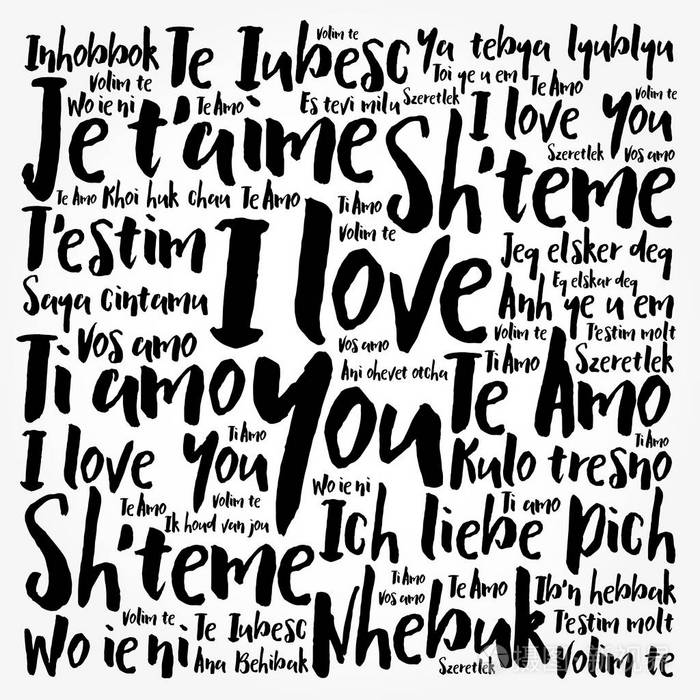 Inhobbok Te Iubesc Volim te Ya tebya lyublyu
Volim te Toi ye u em Te Amo
Wo ie ni Te Amo Es tevi milu Szeretlek I love you Volim te
Je t'aime Sh'teme Szeretlek Vos amo
Te Amo Khoi huk chau Te Amo Ti Amo
T'estim I love Volim te Jeg elsker deg
Eg elskar deg
Saya cintamu Anh ye u em
Vos amo Vos amo Volim te T'estim molt
Ti amo you Ani ohevet otcha Te Amo Ti Amo Szeretlek
I love you Ti Amo Kulo tresno Ti Amo
Wo ie ni
Sh'teme Te Amo Volim te Ich liebe Dich Ti amo
Ik houd van jou
Ti Amo Te Amo Ib'n hebbak
Vos amo
Volim te Te Iubesc Nhebuk T'estim molt
Wo ie ni Ana Behibak Szeretlek Volim te